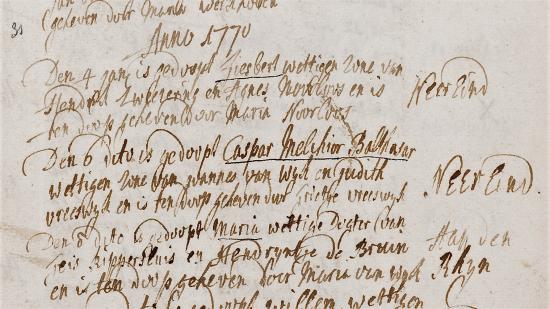 geheven door Maria
31
Anno 1770
Den 4 janj is gedoopt Giesbert wettigen zone van
Hendrik en Agnes en is
ten doop geheven door Maria Noorloos
NeerEind
Den 6 dito is gedoopt Caspar Melchior Balthasar
wettigen zone van wannes van wyk en judith
vreeswyk en is ten doop geheven dur Grietje vreeswyk
NEEREind.
Den 8 dito is gedoopt Maria wettige Dogter van
Geis Ruppersluis en Hendryntje de Bruun
en is ten doop geheven door Maria van wyk
Aan den
Rhyn
willem wettigen